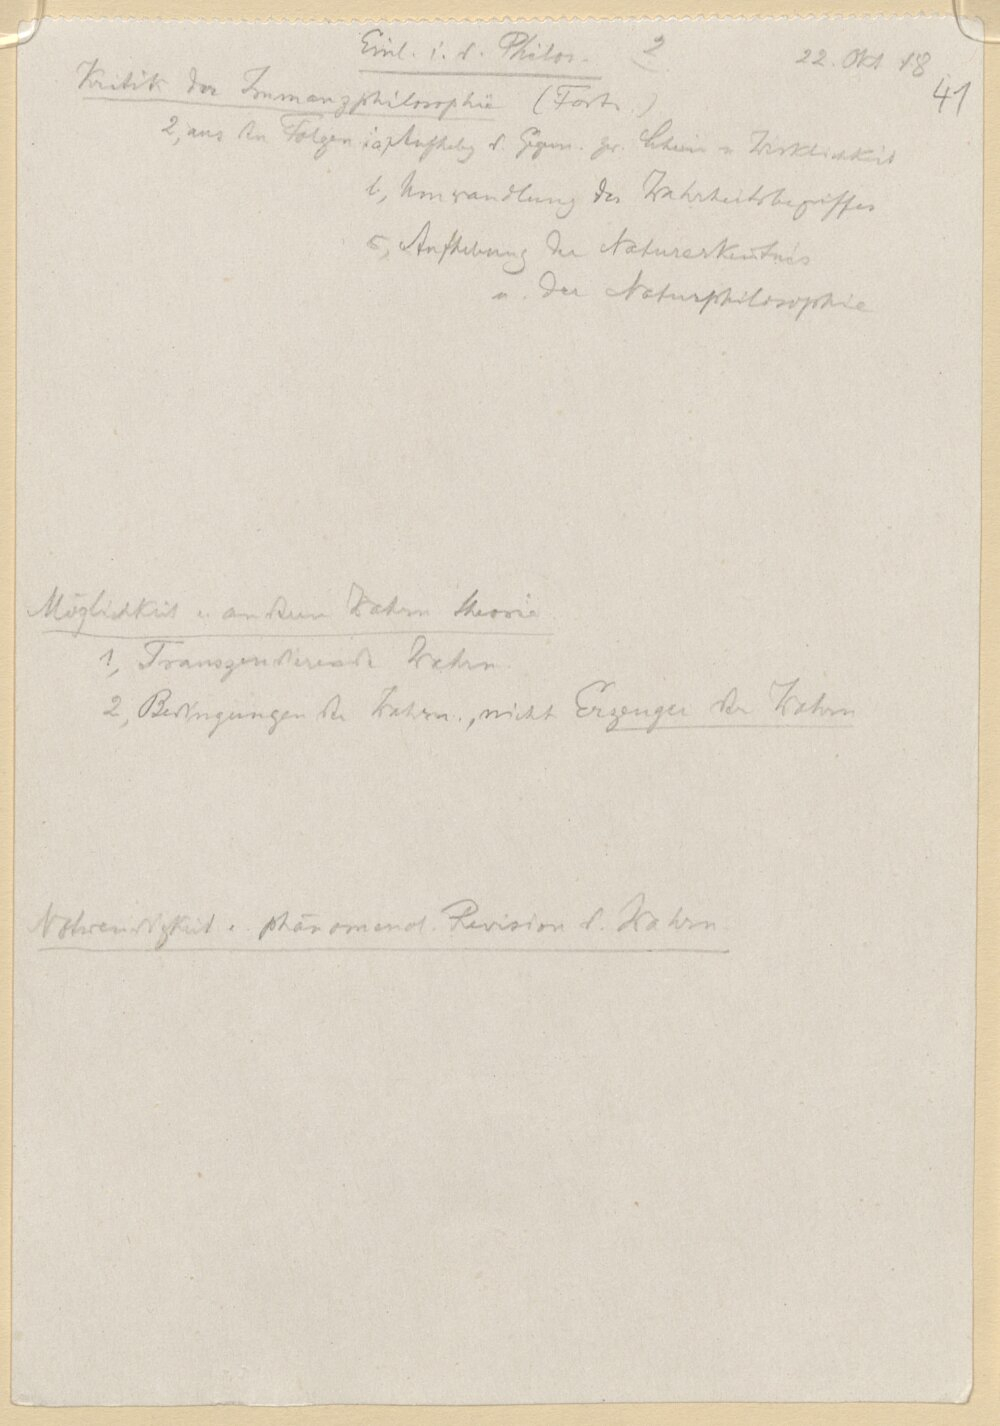 Einl. i. d. Philos. 2
22. Okt 18
41
Kritik der Immanzphilosophie (Forts.)
2, aus den Folgen: a, Aufhebg d. Gegens. zw. Schein u Wirklichkeit
b, Umwandlung des Wahrheitsbegriffes
c, Aufhebung der Naturerkentnis
u. der Naturphilosophie
Möglichkeit e. anderen Wahrn theorie
1, Transzendierende Wahrn.
2, Bedingungen der Wahrn., nicht Erzeuger der Wahrn
Notwendigkeit e. phänomenol. Revision d. Wahrn